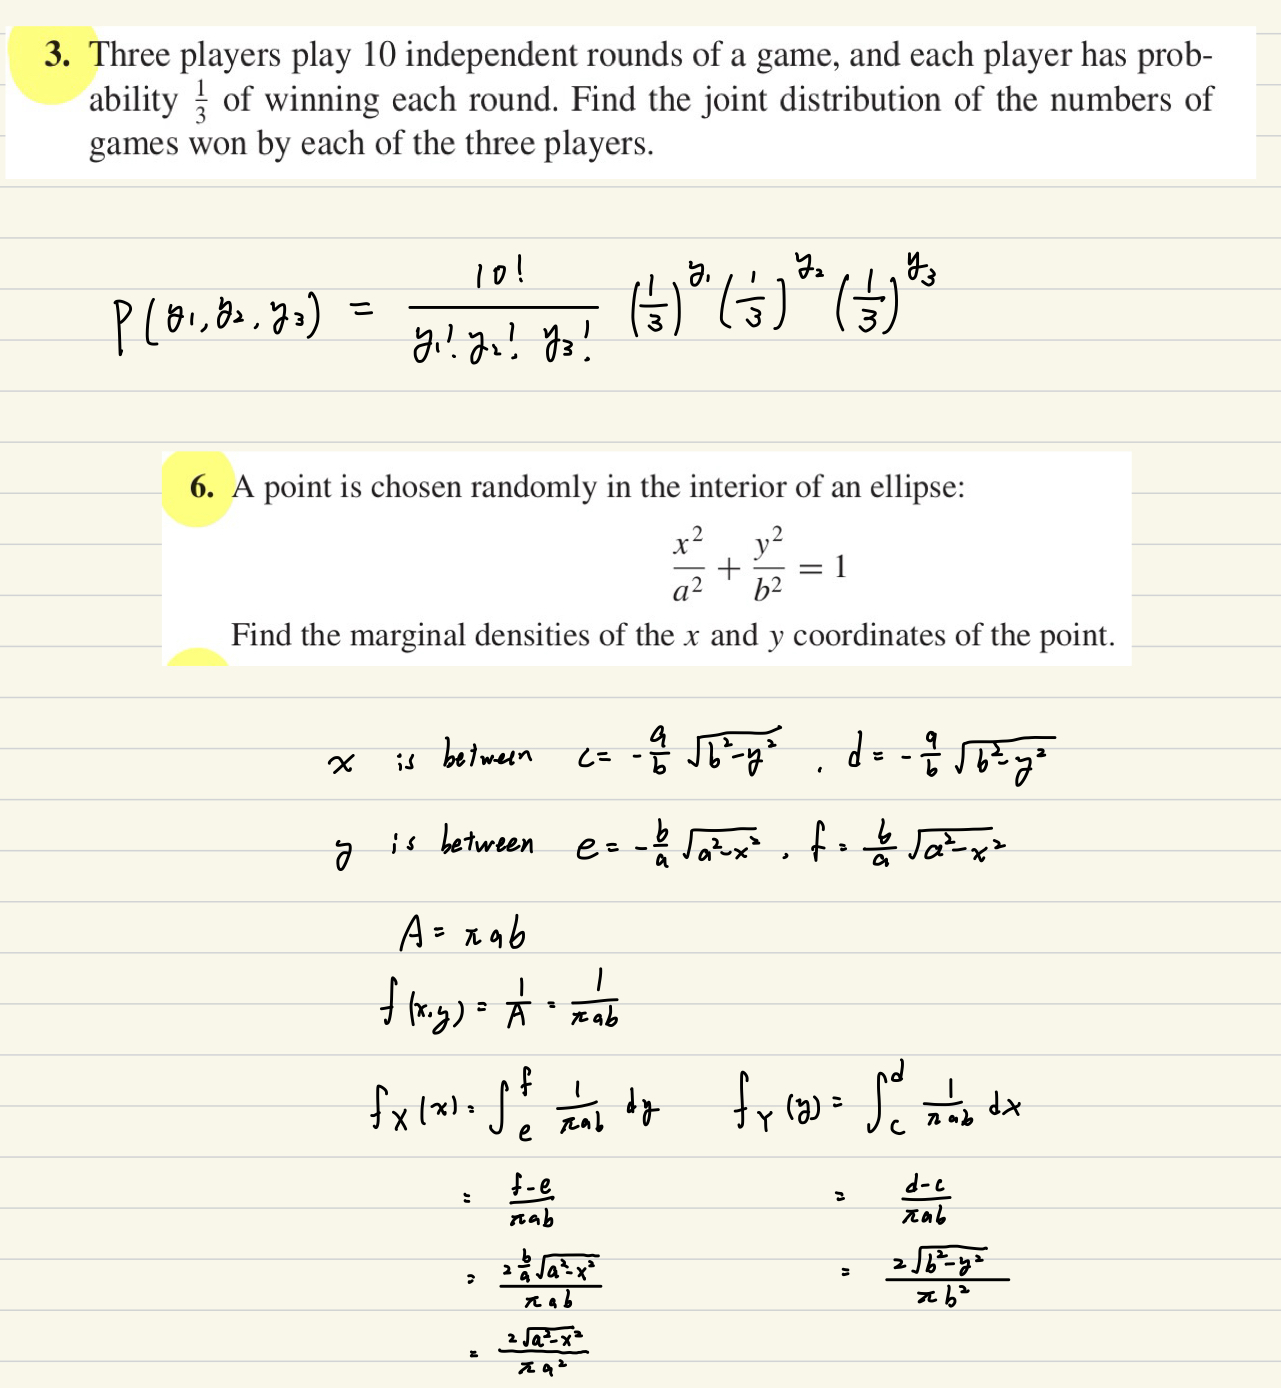 3. Three players play 10 independent rounds of a game, and each player has prob-
ability 1/3 of winning each round. Find the joint distribution of the numbers of
games won by each of the three players.
P(y₁, y₂, y₃) = 10! / (y₁! y₂! y₃!) (1/3)^y₁ (1/3)^y₂ (1/3)^y₃
6. A point is chosen randomly in the interior of an ellipse:
x²/a² + y²/b² = 1
Find the marginal densities of the x and y coordinates of the point.
x is between c = -a/b √(b²-y²), d = -a/b √(b²-y²)
y is between e = -b/a √(a²-x²), f = b/a √(a²-x²)
A = πab
f(x,y) = 1/A = 1/(πab)
f_X(x) = ∫_e^f 1/(πab) dy f_Y(y) = ∫_c^d 1/(πab) dx
= (f-e)/(πab) = (d-c)/(πab)
= (2 b/a √(a²-x²))/(πab) = (2√(b²-y²))/(πb²)
= (2√(a²-x²))/(πa²)